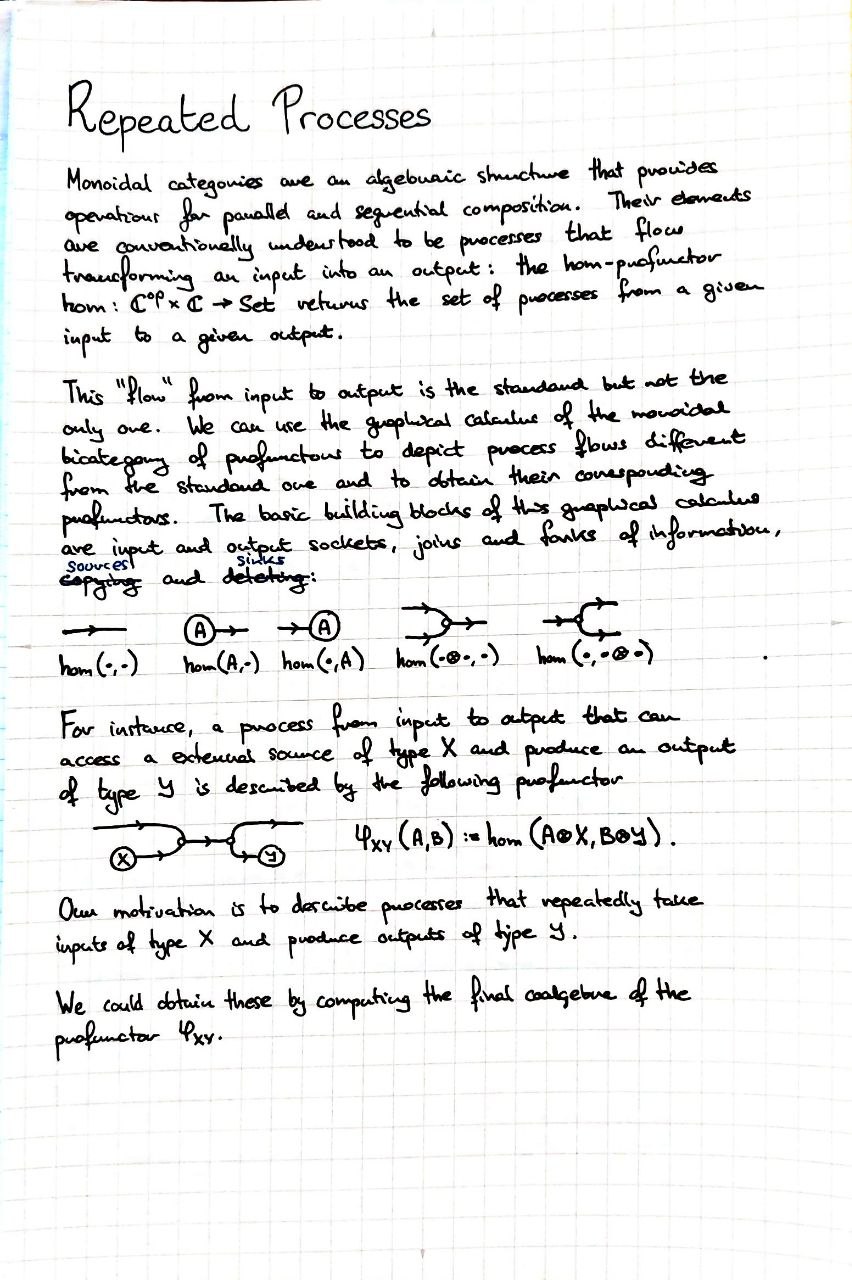 Repeated Processes
Monoidal categories are an algebraic structure that provides
operations for parallel and sequential composition. Their elements
are conventionally understood to be processes that flow
transforming an input into an output: the hom-profunctor
hom: ℂᵒᵖ × ℂ → Set returns the set of processes from a given
input to a given output.
This "flow" from input to output is the standard but not the
only one. We can use the graphical calculus of the monoidal
bicategory of profunctors to depict process flows different
from the standard one and to obtain their corresponding
profunctors. The basic building blocks of this graphical calculus
are input and output sockets, joins and forks of information,
sources sinks
copying and deleting:
A A
hom(·,·) hom(A,·) hom(·,A) hom(·⊗·,·) hom(·,·⊗·)
For instance, a process from input to output that can
access a external source of type X and produce an output
of type Y is described by the following profunctor
X Y Ψ_XY (A,B) := hom (A⊗X, B⊗Y).
Our motivation is to describe processes that repeatedly take
inputs of type X and produce outputs of type Y.
We could obtain these by computing the final coalgebra of the
profunctor Ψ_XY.